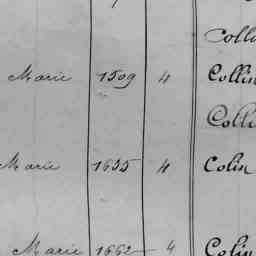 Coll
Marie 1509 4 Collin
Coll
Marie 1635 4 Colin
Marie 1662 4 Colin